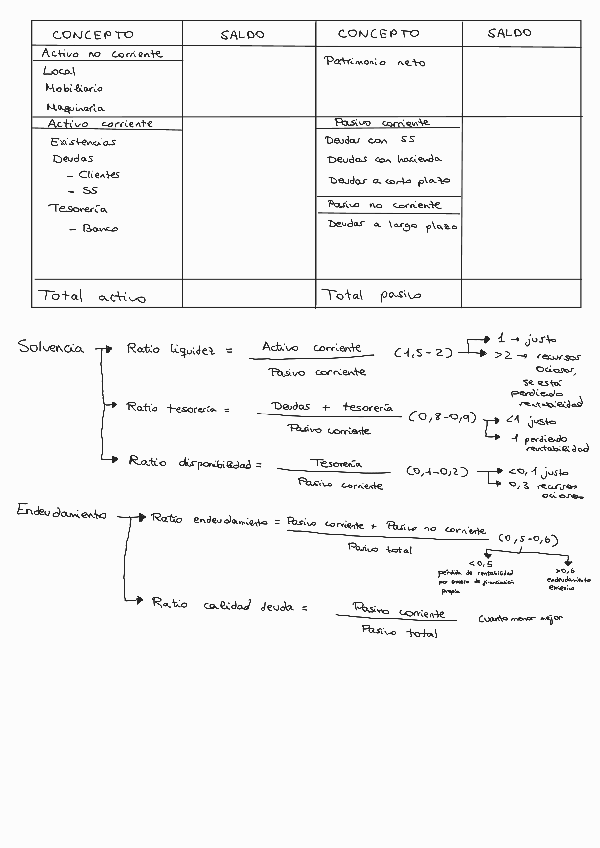 CONCEPTO SALDO CONCEPTO SALDO
Activo no corriente
Local
Mobiliario
Maquinaria
Patrimonio neto
Activo corriente
Existencias
Deudas
- Clientes
- SS
Tesorería
- Banco
Pasivo corriente
Deudas con SS
Deudas con hacienda
Deudas a corto plazo
Pasivo no corriente
Deudas a largo plazo
Total activo Total pasivo
Solvencia → Ratio liquidez = Activo corriente / Pasivo corriente (1,5-2)
→ 1 → justo
→ >2 → recursos
ociosos,
se está
perdiendo
rentabilidad
→ Ratio tesorería = Deudas + tesorería / Pasivo corriente (0,8-0,9)
→ <1 justo
→ 1 perdiendo
rentabilidad
→ Ratio disponibilidad = Tesorería / Pasivo corriente (0,1-0,2)
→ <0,1 justo
→ 0,3 recursos
ociosos
Endeudamiento → Ratio endeudamiento = Pasivo corriente + Pasivo no corriente / Pasivo total (0,5-0,6)
<0,5
perdida de rentabilidad
por exceso de financiación
propia
>0,6
endeudamiento
excesivo
→ Ratio calidad deuda = Pasivo corriente / Pasivo total
Cuanto menor mejor